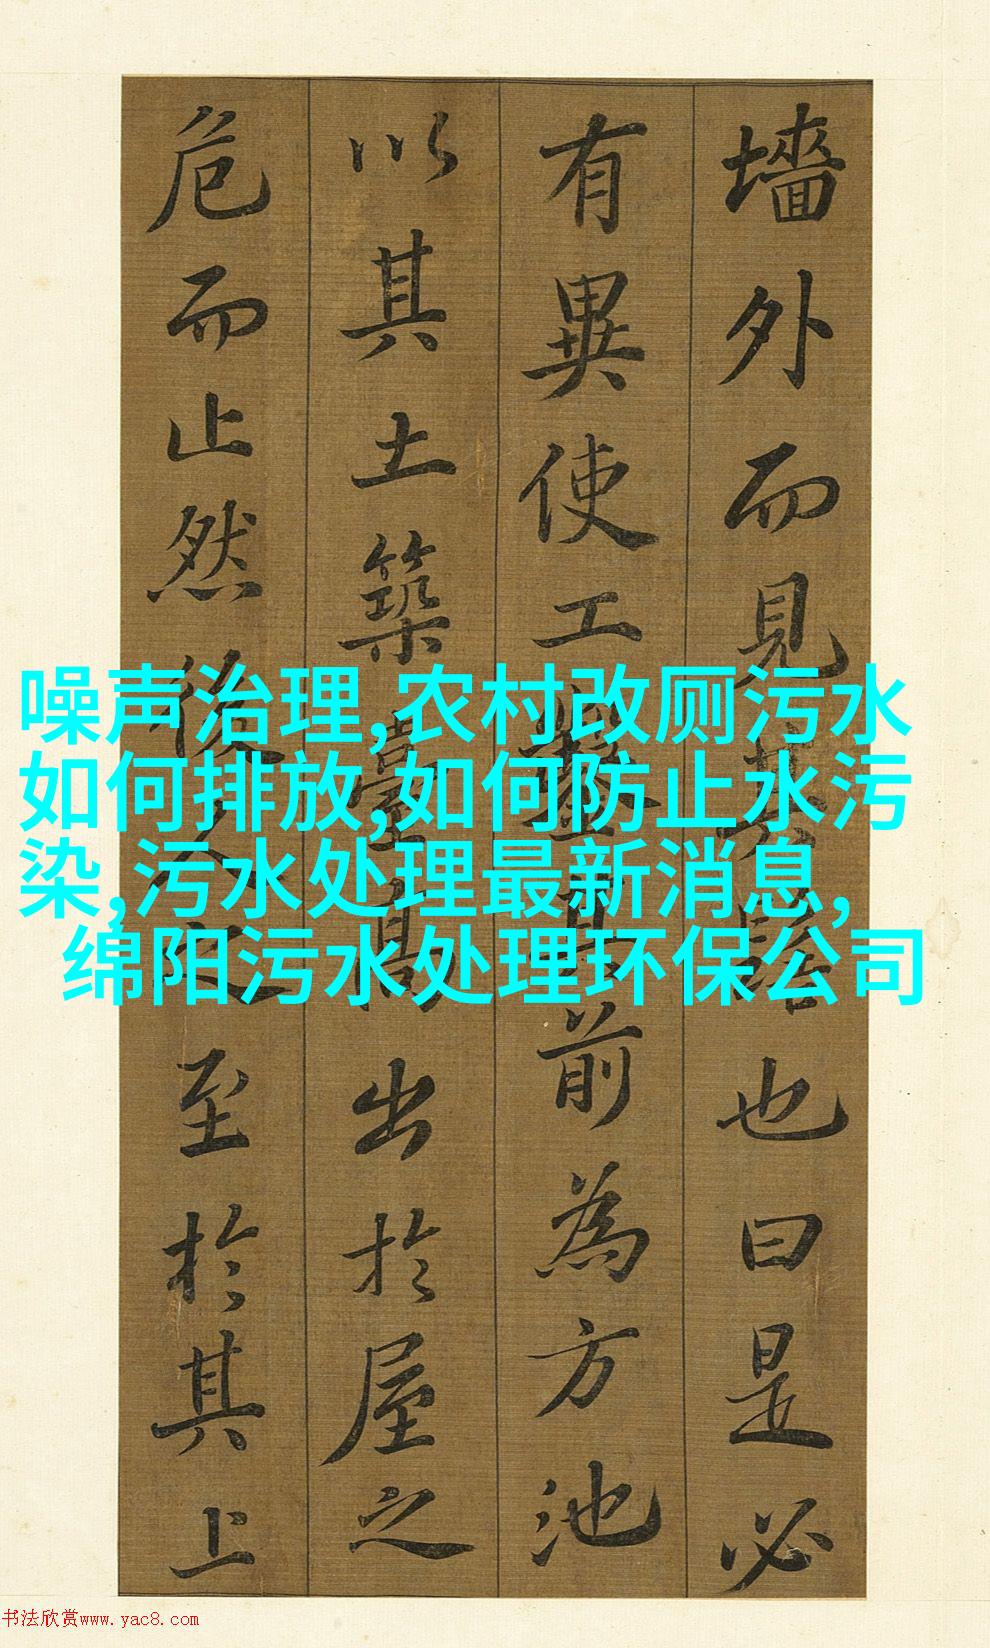 墻外而見其髻也曰是必
有異使工鑿其前為方池
以其土築臺高出於屋之
危而止然後人之至於其上
噪声治理,农村改厕污水
如何排放,如何防止水污
染,污水处理最新消息,
绵阳污水处理环保公司
书法欣赏www.yac8.com